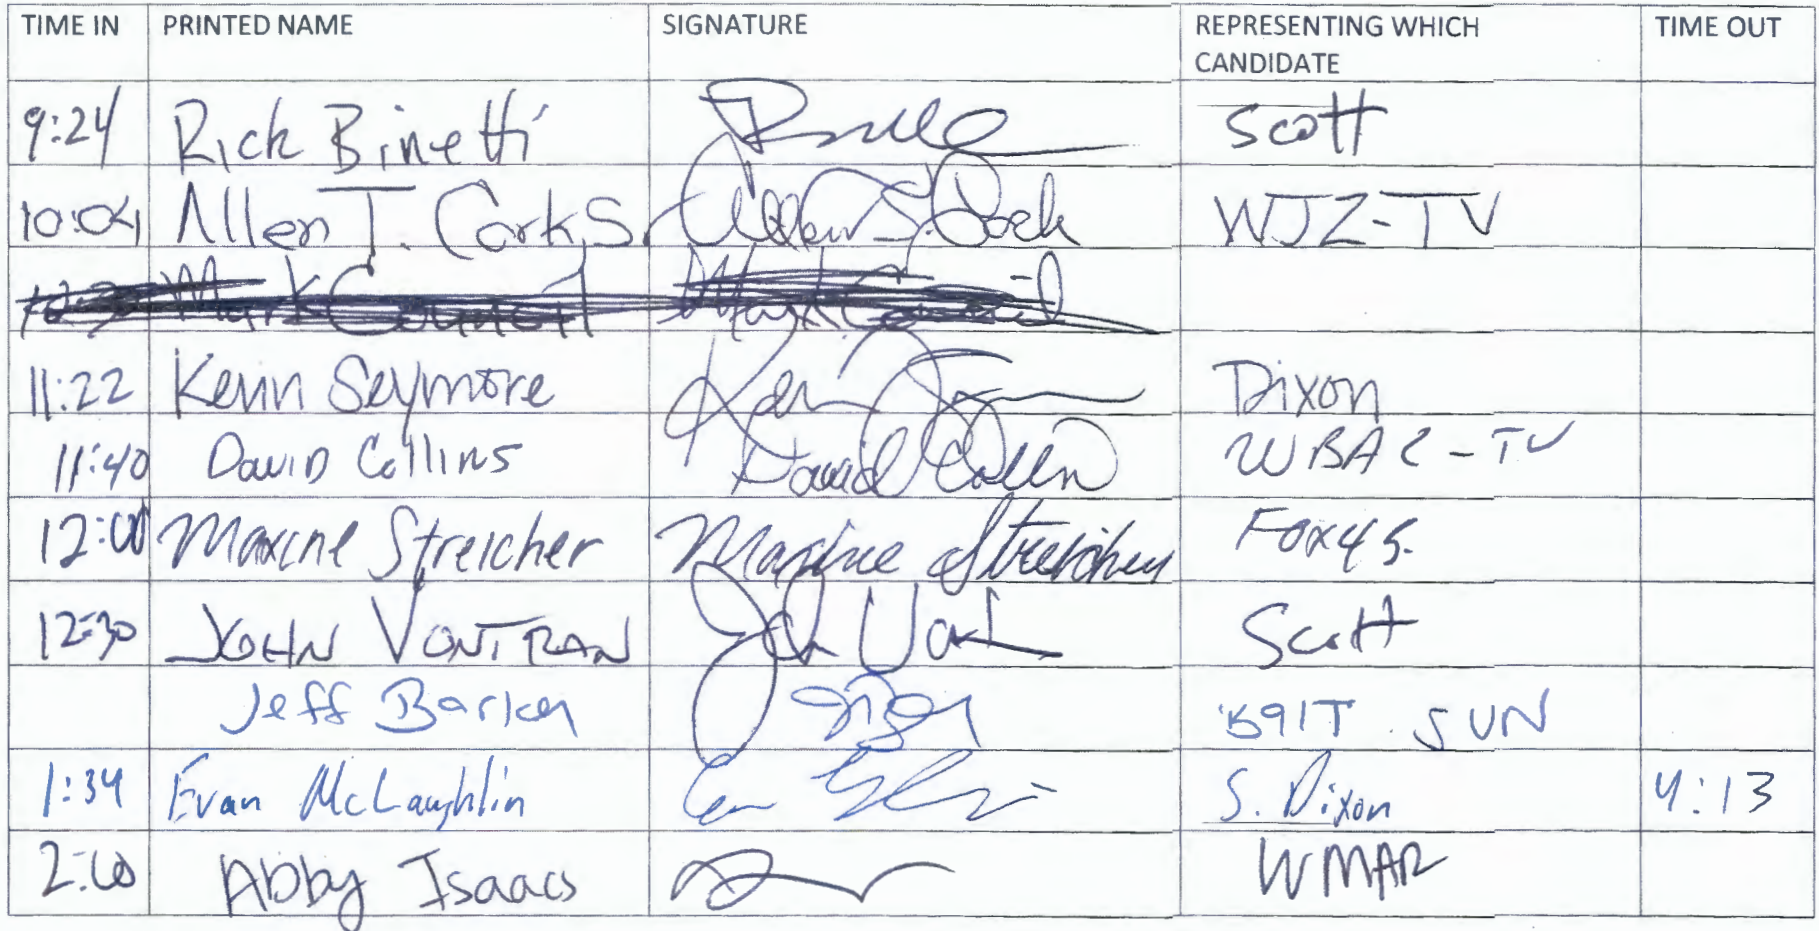 TIME IN PRINTED NAME SIGNATURE REPRESENTING WHICH CANDIDATE TIME OUT
9:24 Rick Binetti Scott
10:04 Allen T. Cork, S. WJZ-TV
Mark Council Mark Council
11:22 Kevin Seymore Dixon
11:40 David Collins David Collin WBAL-TV
12:00 Maxine Streicher Maxine Streicher Fox45.
12:30 JOHN VONTRAN Scott
Jeff Barker SUN
1:34 Evan McLaughlin S. Dixon 4:13
Abby Isaacs WMAR